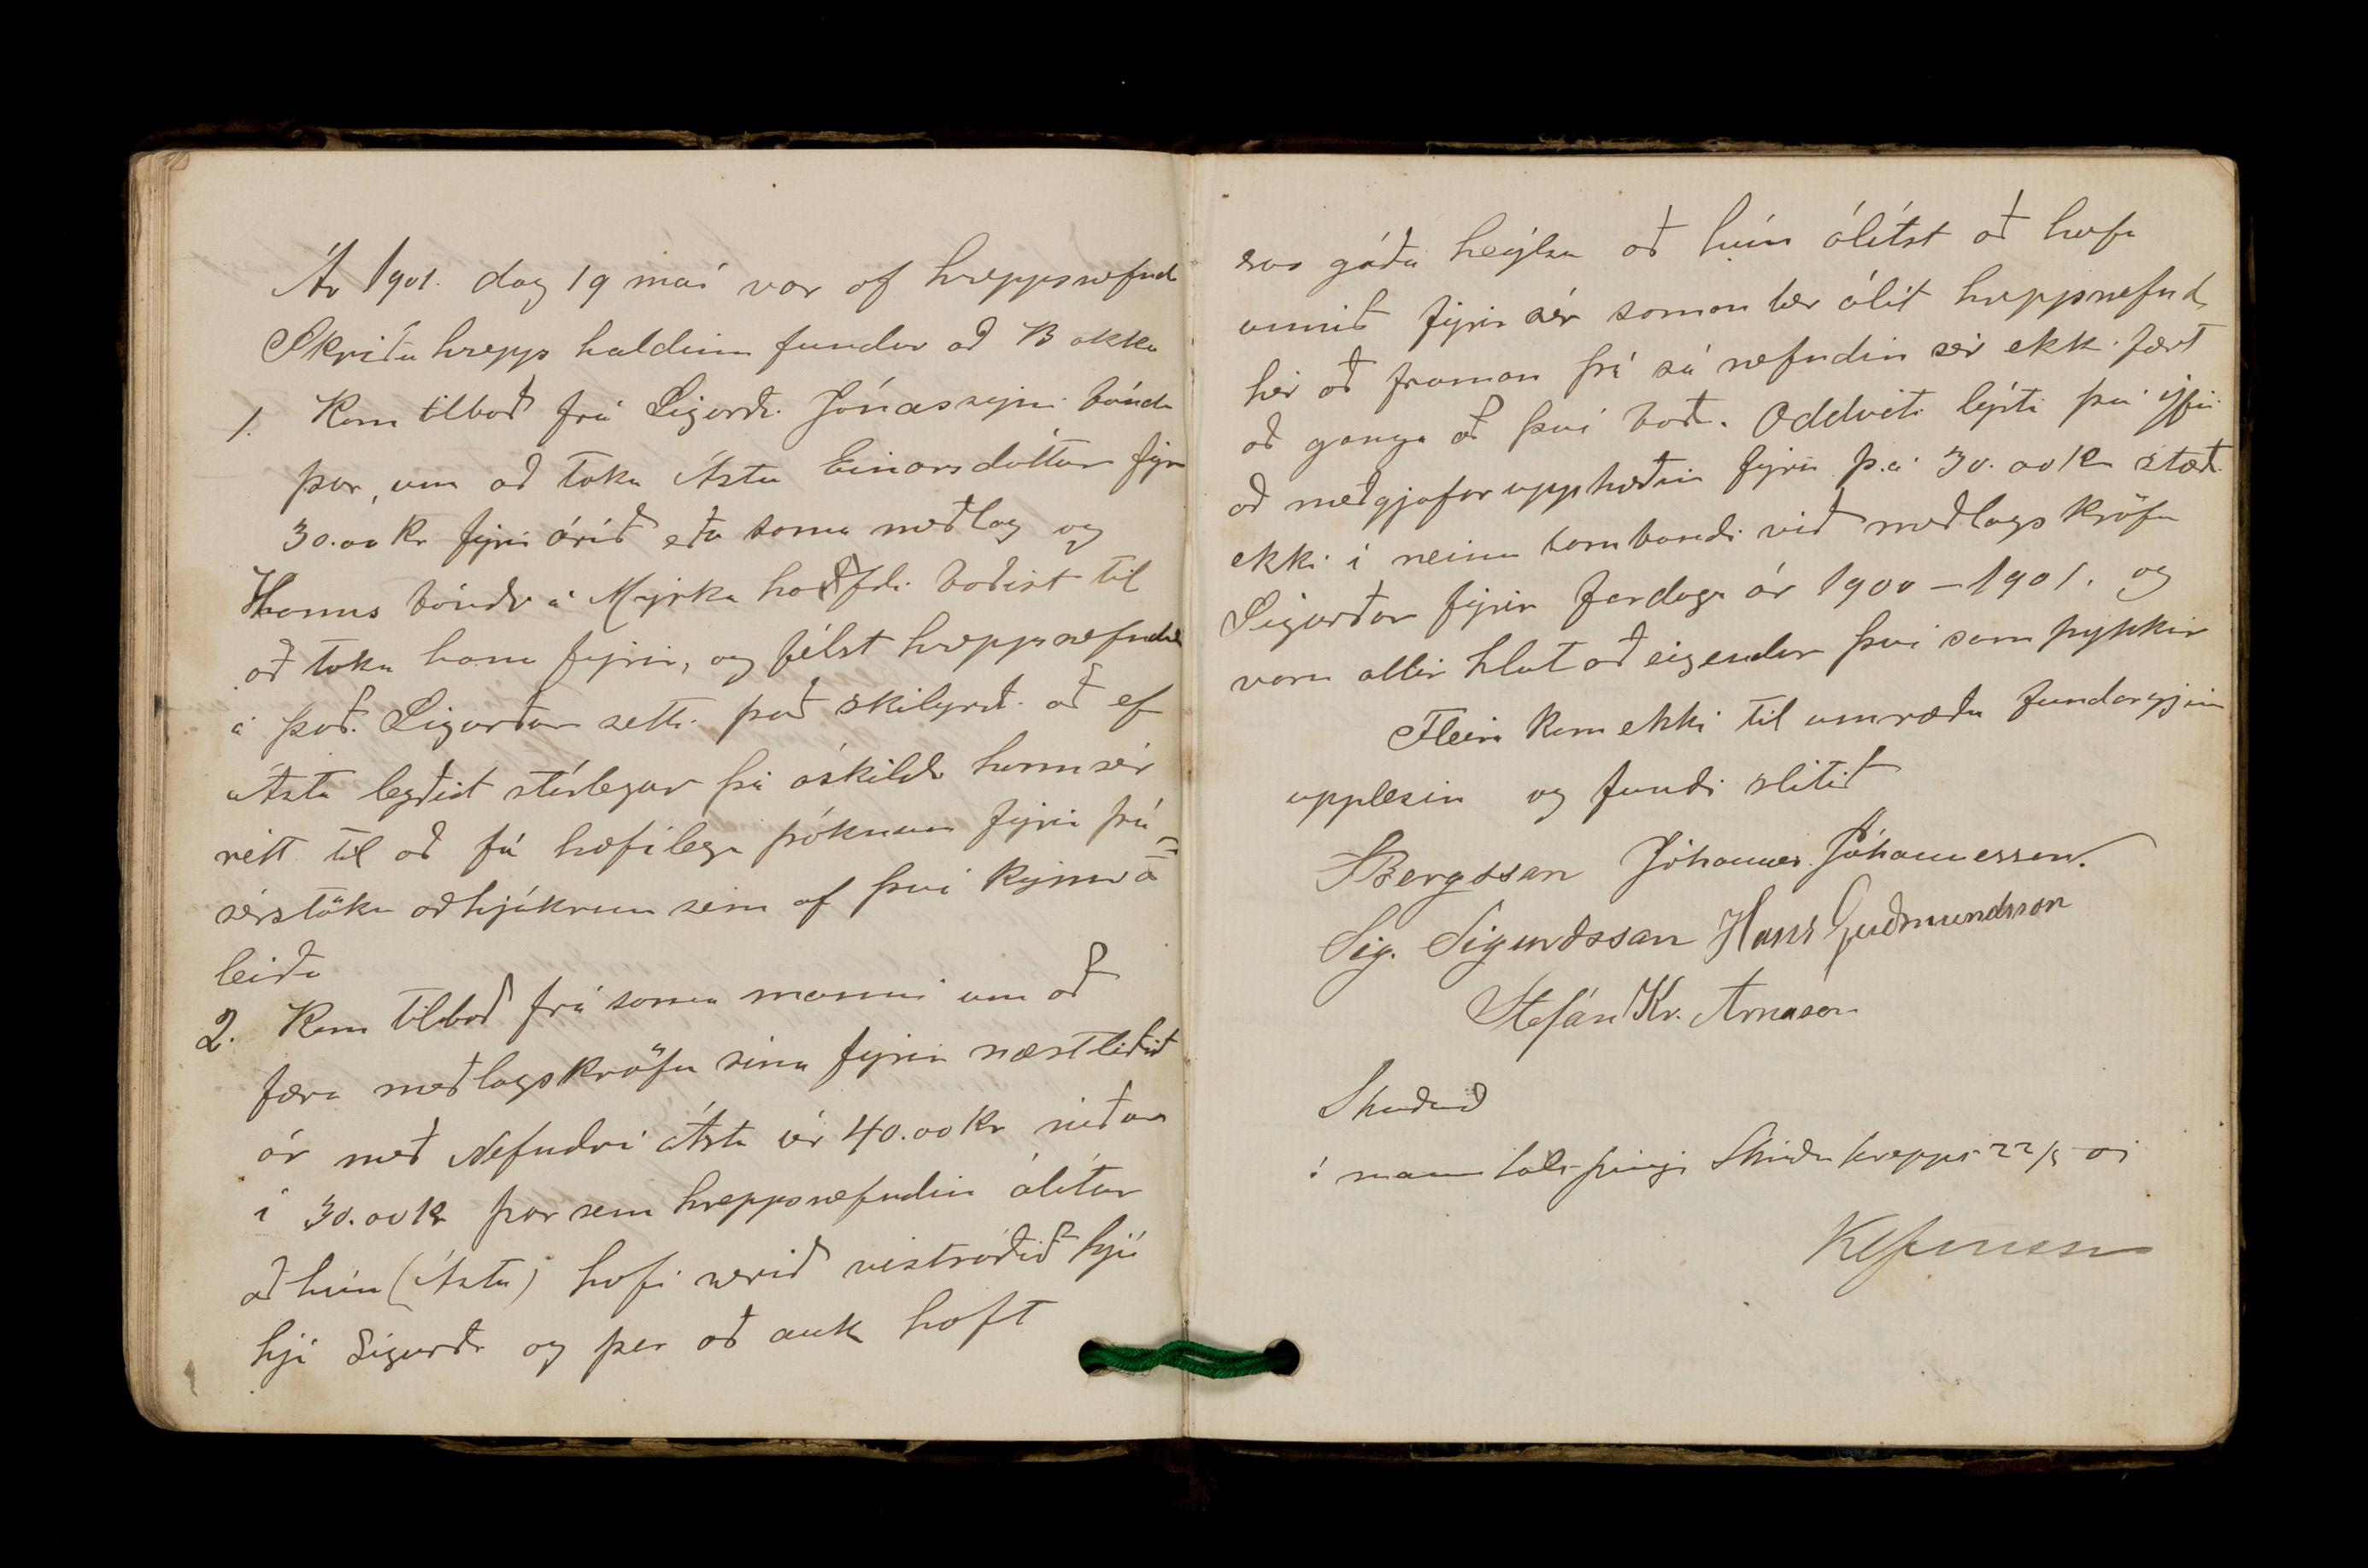 Ár 1901. dag 19 maí var af hreppsnefnd
Skriðuhrepps haldinn fundur að Bakka
1. Kom tilboð frá Sigurði Jónassyni bónda
þar, um að taka Ástu Einarsdóttur fyrir
30.00 kr fyrir árið eða sama meðlag og
Hannes bóndi á Myrká hafði boðist til
að taka hana fyrir, og félst hreppsnefndin
á það. Sigurður setti það skilyrði að ef
Ásta legðist stórlegur þá áskildi hann sér
rétt til að fá hæfilega þóknun fyrir þá
sérstöku aðhjúkrun sem af því kynni að
leiða
2. Kom tilboð frá sama manni um að
færa meðlagskröfu sína fyrir næstliðið
ár með nefndri Ástu úr 40.00 kr niður
í 30.00 kr þar sem hreppsnefndin álítur
að hún (Ásta) hafi verið vistráðið hjá
hjá Sigurði og þar að auk haft
svo góða heylsu að hún álítst að hafa
unnið fyrir sér samanber álit hreppsnefnd
hér að framan þá sá nefndin sér ekki fært
að ganga að því boði. Oddviti lýsti þá yfir
að meðgjafarupphæðin fyrir þ.á. 30.00 kr stæði
ekki í neinu sambandi við meðlagskröfu
Sigurðar fyrir fardaga ár 1900 – 1901. og
voru allir hlutaðeigendur því samþykkir
Fleira kom ekki til umræðu fundargjörð
upplesin og fundi slitið
SBergsson Jóhannes Jóhannesson.
Sig. Sigurðsson Hans Guðmundsson
Stefán Kr. Árnason
Skoðað
í manntalsþingi Skriðuhrepps 22/5 01